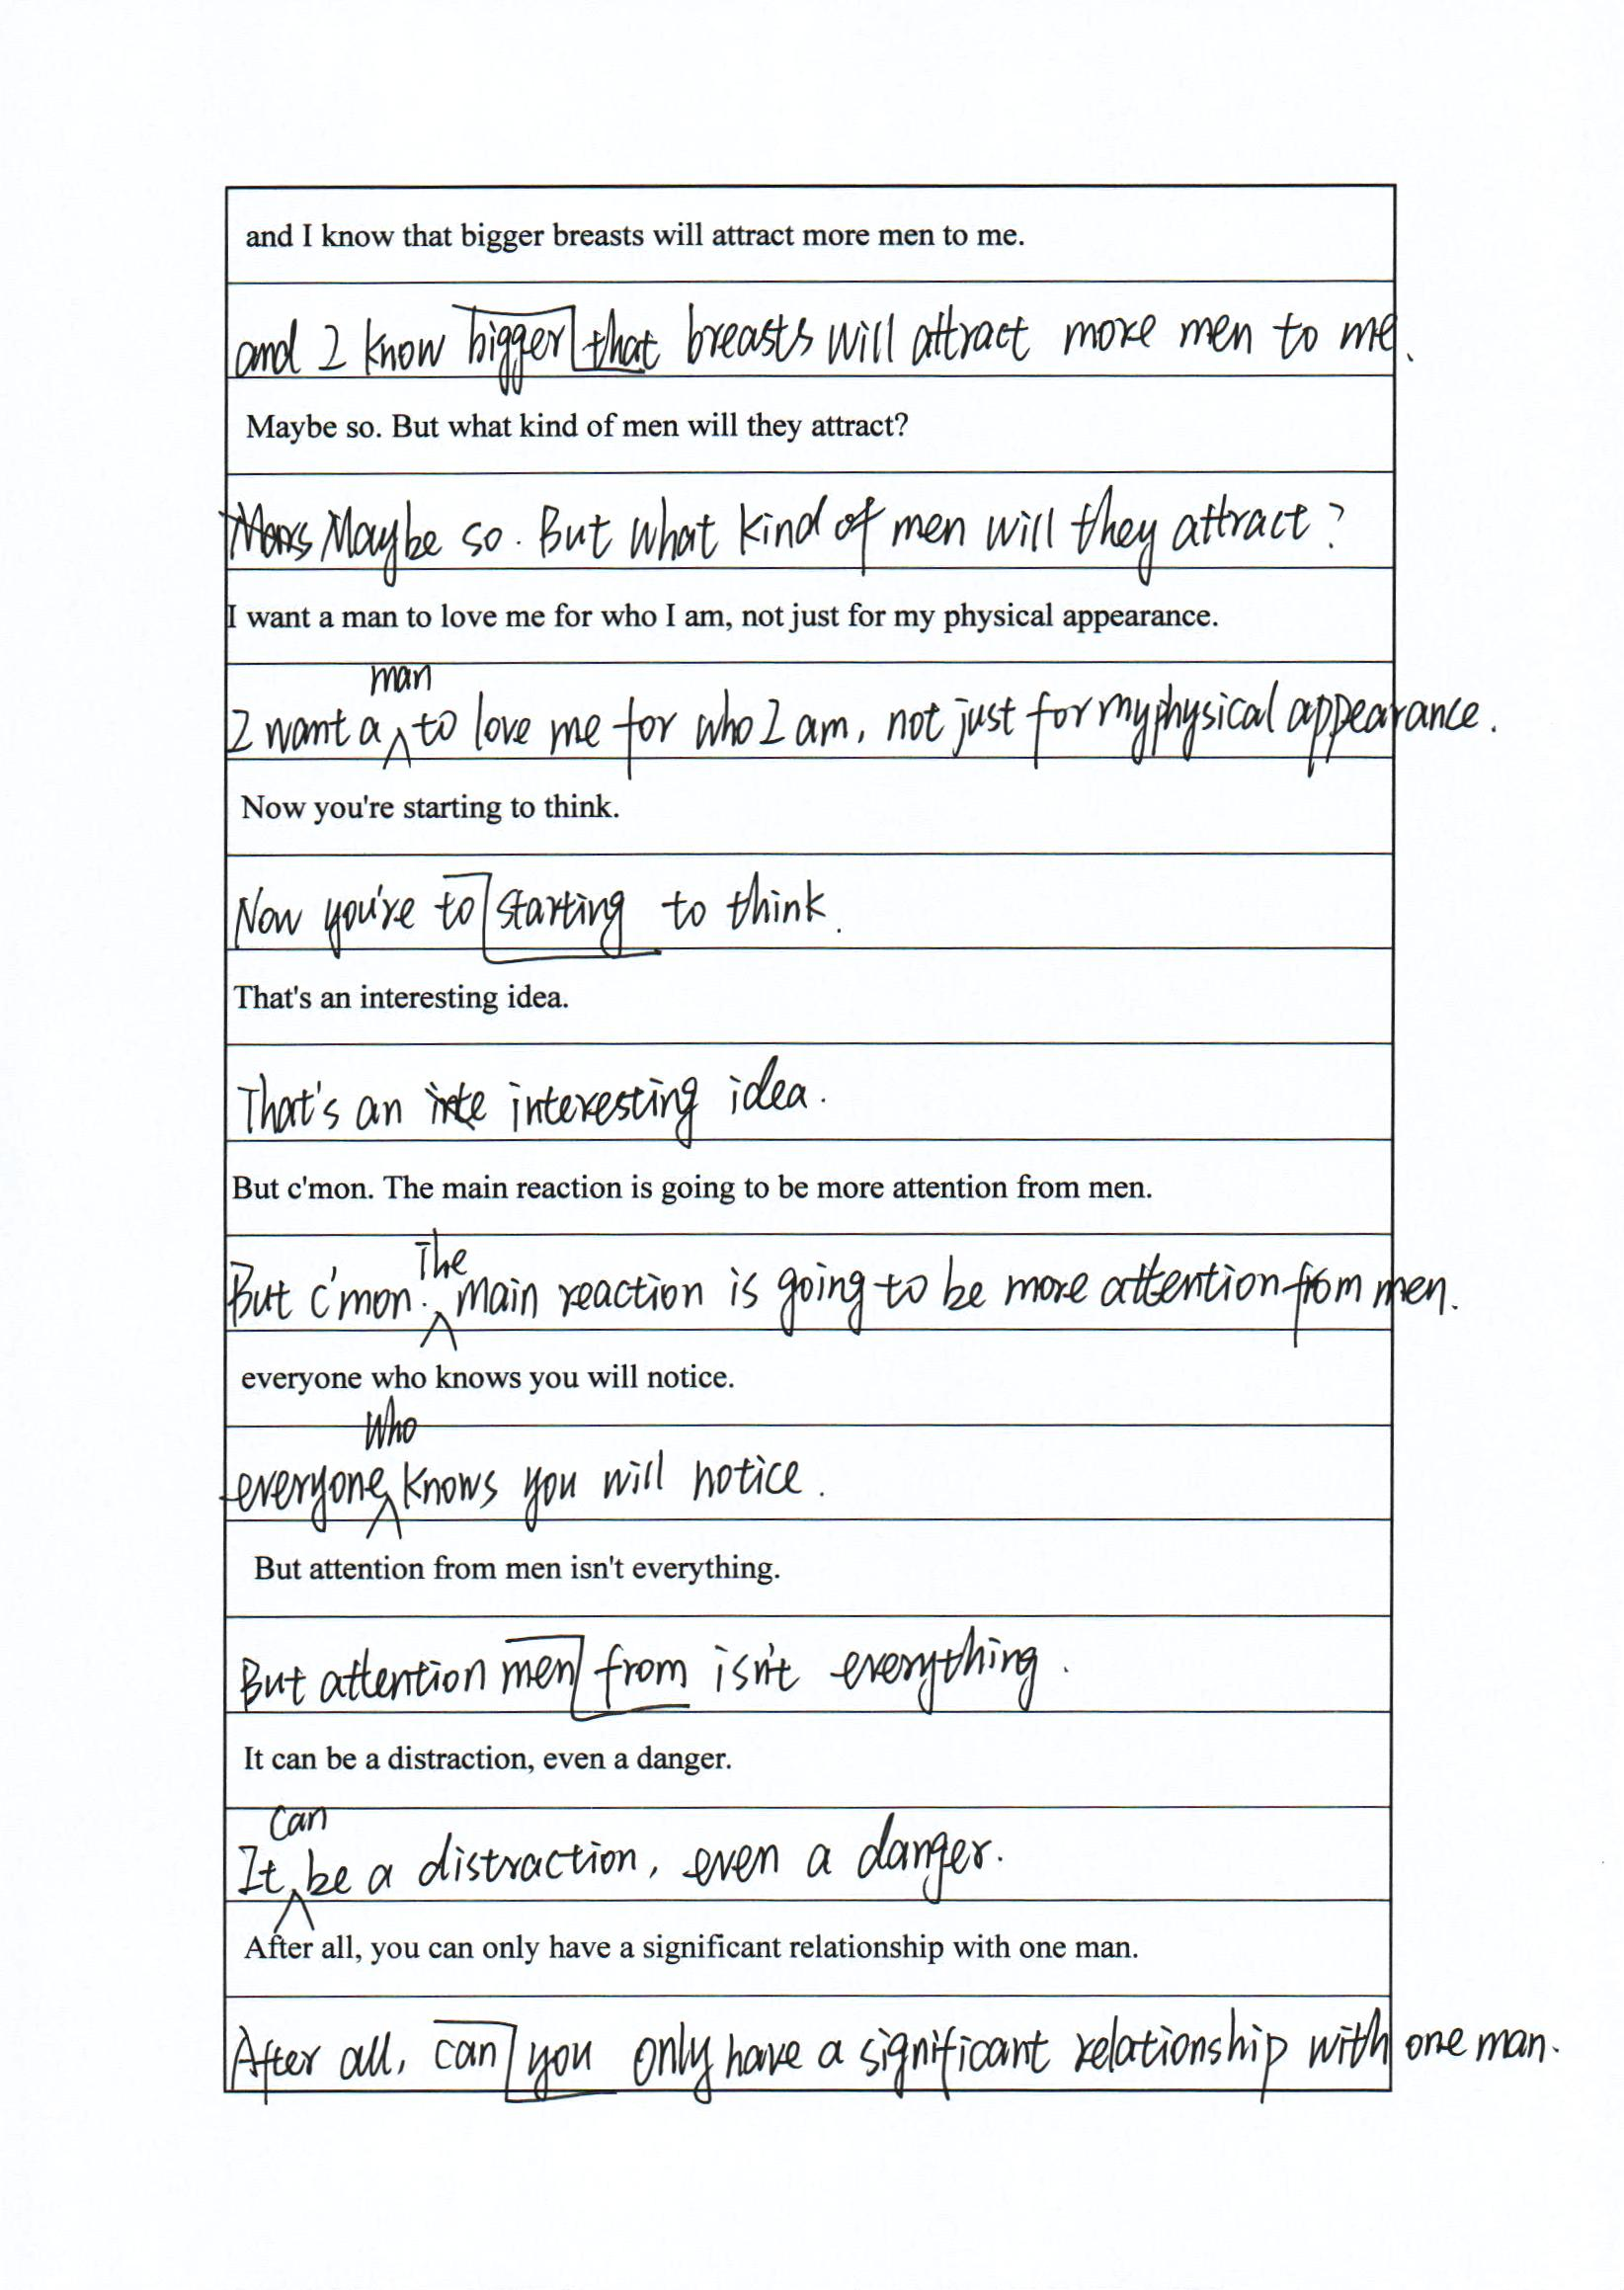 and I know that bigger breasts will attract more men to me.
and I know bigger that breasts will attract more men to me.
Maybe so. But what kind of men will they attract?
Maybe so. But what kind of men will they attract?
I want a man to love me for who I am, not just for my physical appearance.
man
I want a to love me for who I am, not just for my physical appearance.
Now you're starting to think.
Now you're to starting to think.
That's an interesting idea.
That's an inte interesting idea.
But c'mon. The main reaction is going to be more attention from men.
The
But c'mon. main reaction is going to be more attention from men.
everyone who knows you will notice.
who
everyone knows you will notice.
But attention from men isn't everything.
But attention men from isn't everything.
It can be a distraction, even a danger.
can
It be a distraction, even a danger.
After all, you can only have a significant relationship with one man.
After all, can you only have a significant relationship with one man.